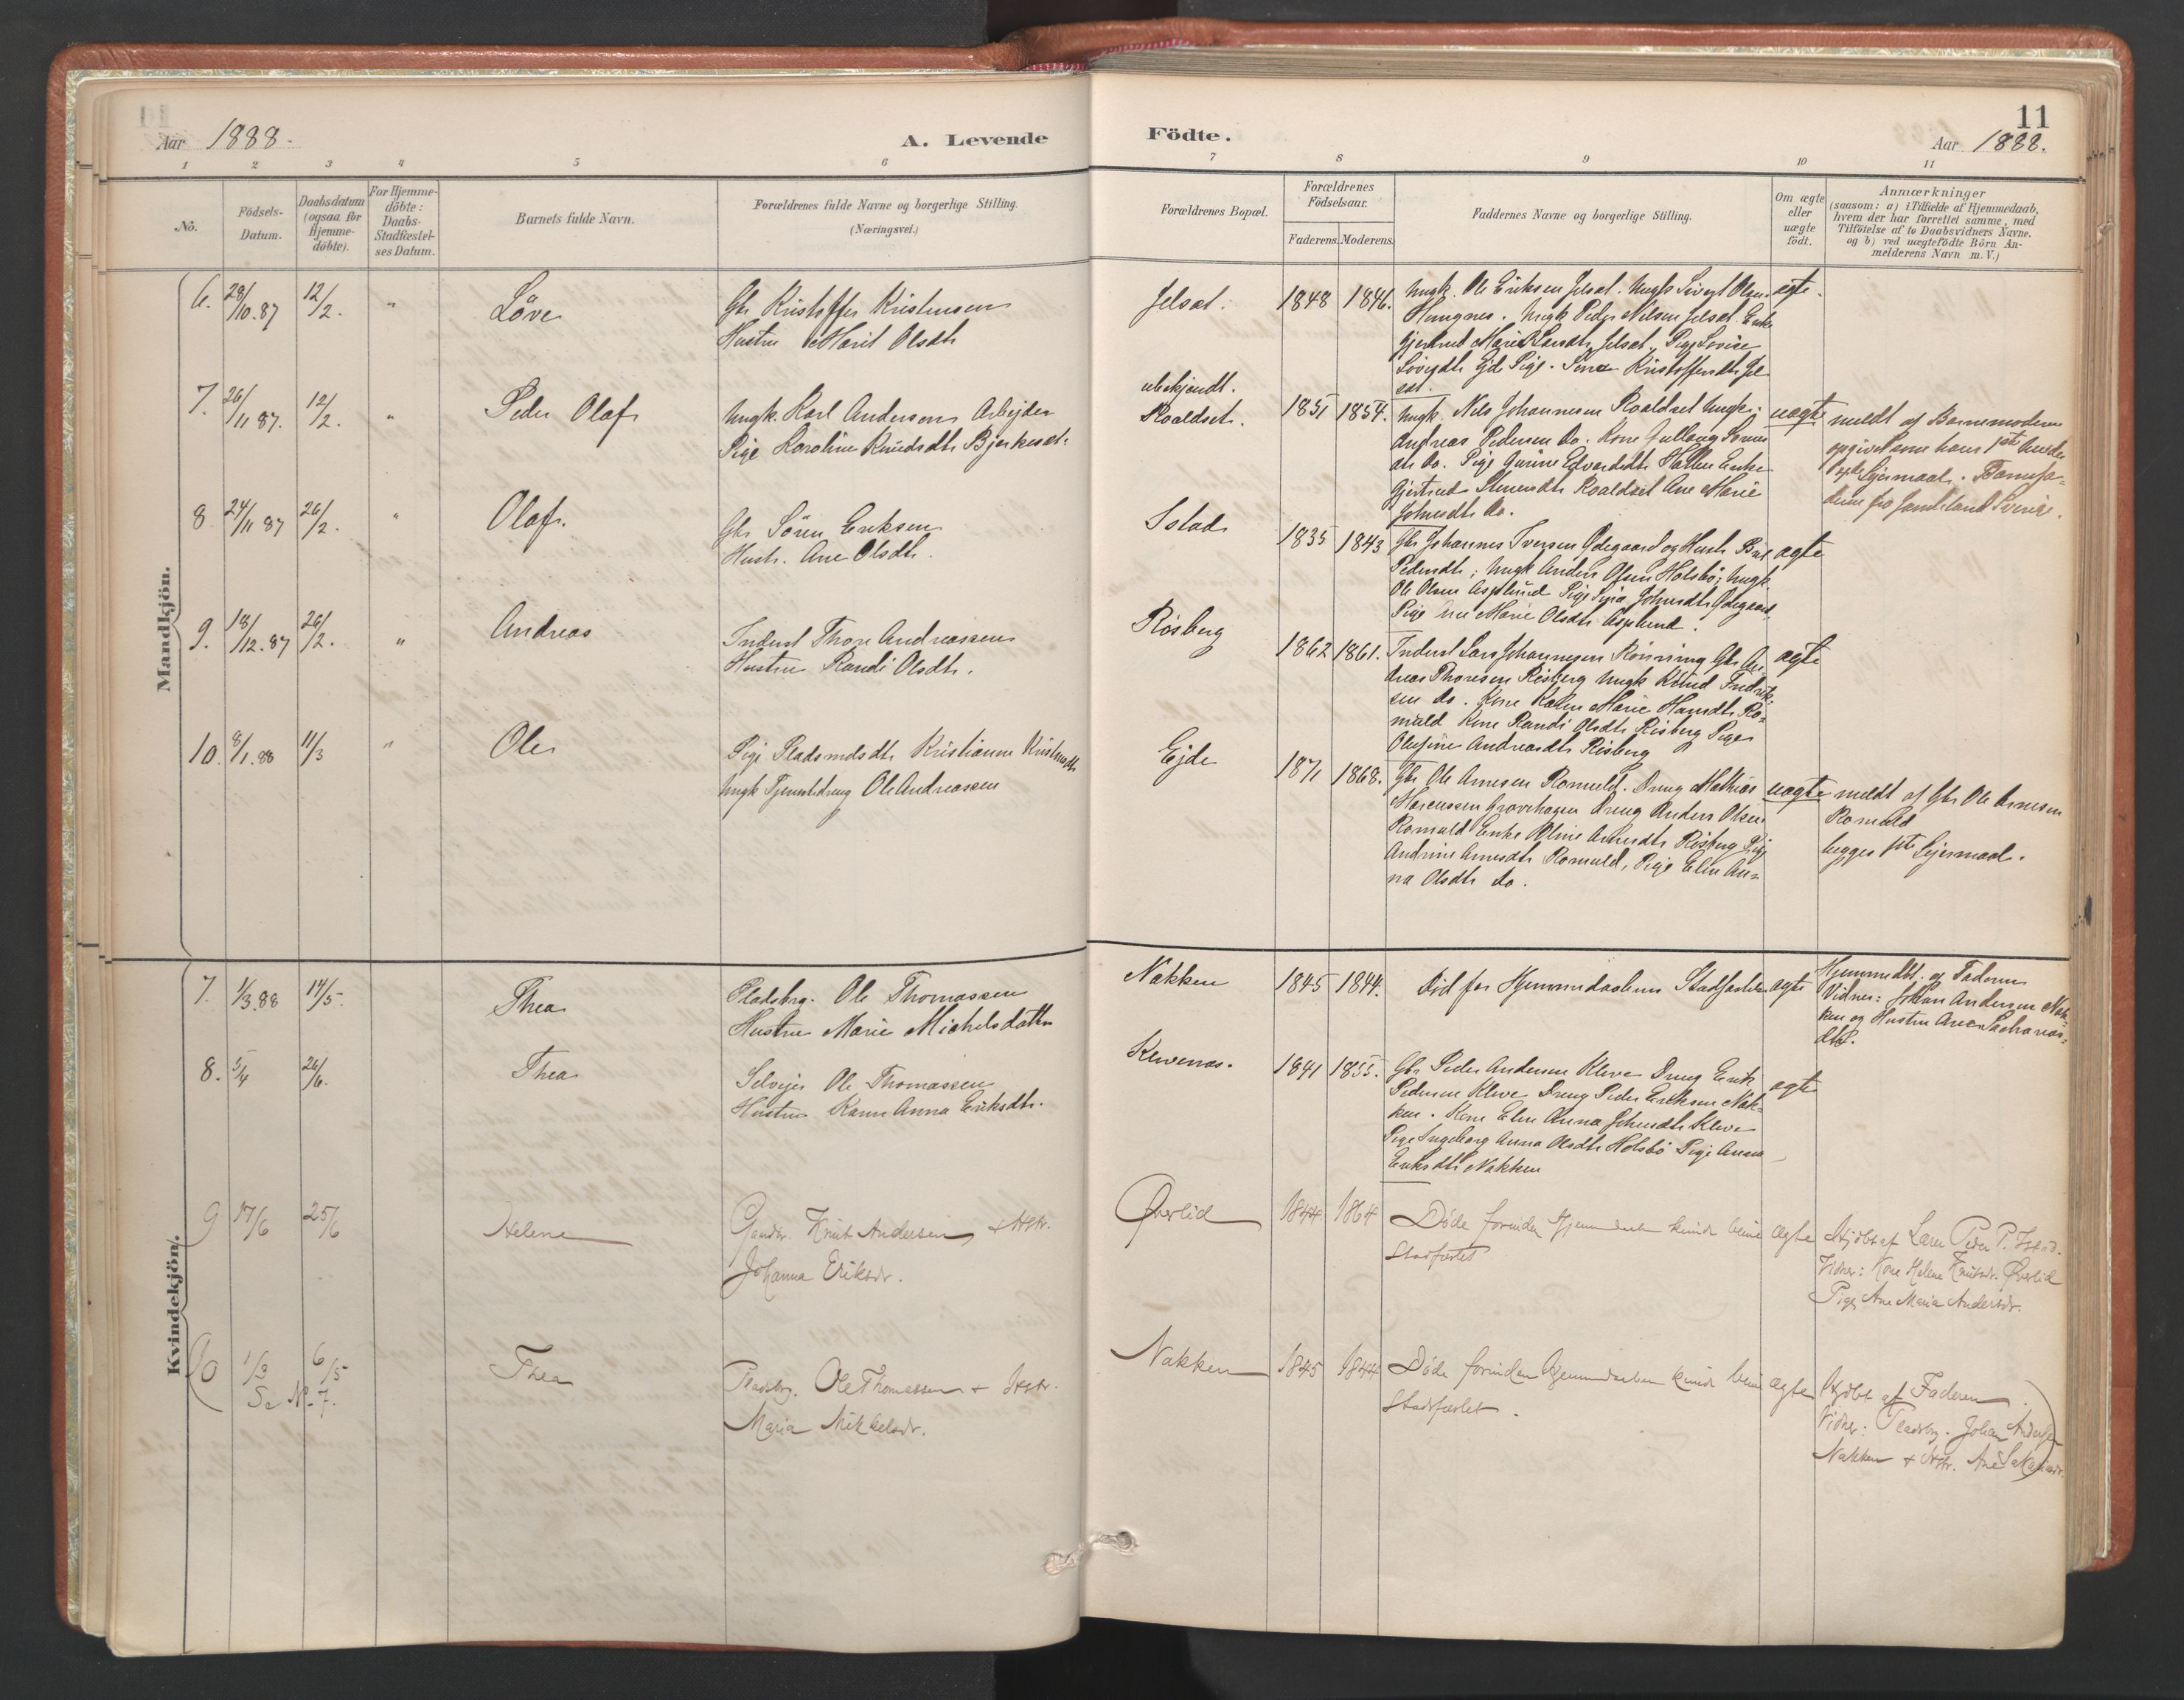 11
Aar 1888.
A. Levende Födte.
Aar 1888.
1 2 3 4 5 6 7 8 9 10 11
No.
Födsels-Datum.
Daabsdatum (ogsaa for Hjemmedöbte).
For Hjemmedöbte: Daabs-Stadfæstelses Datum.
Barnets fulde Navn.
Forældrenes fulde Navne og borgerlige Stilling.
(Næringsvei.)
Forældrenes Bopæl.
Forældrenes Födselsaar.
Faderens. Moderens.
Faddernes Navne og borgerlige Stilling.
Om ægte eller uægte födt.
Anmærkninger
(saasom: a) i Tilfælde af Hjemmedaab,
hvem der har forrettet samme, med
Tilföielse af to Daabsvidners Navne.
og b) ved uægtefödte Börn An-
melderens Navn m. V.)
Mandkjön.
6. 28/10.87 12/2. " Löve
Gbr Kristoffer Kristensen
Hustru Marit Olsdtr
Jelsæt. 1848 1846.
Ungk. Ole Eriksen Jelsæt. Ungk Sivert Olsen
Hungnes. Ungk Peder Nilsen Jelsæt. Enke
Gjertrud Marie Larsdtr Jelsæt. Pige Lovise
Kristoffersdtr Jel
sæt.
ægte.
7. 26/11 87. 12/2. " Peder Olaf
Ungk. Karl Anderson Arbejder
Pige Karoline Knudsdtr Bjerkeset.
ubekjendt.
Roaldset. 1851 1854.
Ungk. Nils Johannesen Roaldset Ungk.
Andreas Pedersen do. Kone Gullaug
dtr do. Pige Gurine Edvardsdtr Hallen Enke
Gjertrud Roaldset Ane Marie
Johnsdtr do.
uægte
meldt af Barnemoderen
opgivet som hans 1ste hendes
Lejermaal. Barnefa-
deren fra Jemtland Sverige.
8. 24/11 87 26/2. " Olaf.
Gbr Sören Eriksen
Hustr. Ane Olsdtr.
Istad 1835 1843
Gbr Johannes Iversen Ödegaard og Hustr Brit
Pedersdtr; Ungk Anders Olsen Holsbö; Ungk
Ole Olsen Asplund Pige Johnsdtr Ödegaard,
Pige Ane Marie Olsdtr Asplund.
ægte
9. 18/12.87 26/2. " Andreas
Inderst Thore Andreassen
Hustru Randi Olsdtr.
Risberg 1862 1861.
Inderst Lars Johannesen Rönning Gbr An-
dreas Thoresen Risberg Ungk Knud Fredrik-
sen do. Kone Karen Marie Hansdtr Ro-
muld Kone Randi Olsdtr Risberg Pige
Olufine Andreasdtr Risberg
ægte
10. 8/1.88 11/3 " Ole
Pige Pladsmdsdtr Kristianne Kristensdtr
Ungk Tjenestedreng Ole Andreassen
Ejde 1871 1868.
Gbr Ole Arnesen Romuld. Dreng Mathias
Grovehagen Dreng Anders Olsen
Romuld Enke Oline Arnesdtr Risberg Pige
Andrine Arnesdtr Romuld, Pige Elen An-
na Olsdtr do.
uægte
meldt af Gbr Ole Arnesen
Romuld
begges 1ste Lejermaal.
Kvindekjön.
7. 1/3.88 14/5. Thea
Pladsbrg. Ole Thomassen
Hustru Marie Michelsdatter
Nakken 1845 1844.
Död for Hjemmedaabens Stadfæstelse
ægte
Hjemmedbt. af Faderen
Vidner: Johan Andersen Nak-
ken og Hustru Ane Sacharias-
dtr.
8. 5/4 26/6. Thea
Selvejer Ole Thomassen
Hustru Karen Anna Eriksdtr.
Klevenæs. 1841 1855.
Gbr Peder Andersen Kleve Dreng Erik
Pedersen Kleve Dreng Peder Eriksen Nak-
ken. Kone Elen Anna Johnsdtr Kleve
Pige Ingeborg Anna Olsdtr Holsbö Pige Anna
Eriksdtr Nakken
ægte
9 17/6 25/6 Helene
Gaardbr. Knut Andersen & Hstr.
Johanna Eriksdr.
Øverlid 1844 1864
Døde forinden Hjemmedaaben kunde blive
Stadfæstet
ægte
Hjdbt af Lærer Peder P. Istad.
Vidner: Kone Helene Knutsdr. Øverlid
Pige Ane Maria Andersdr.
10 1/3 6/5 Thea
Se No 7.
Pladsbrg. Ole Thomassen & Hstr.
Maria Mikkelsdr.
Nakken 1845 1844
Døde forinden Hjemmedaaben kunde blive
Stadfæstet.
ægte
Hjdbt af Faderen.
Vidner: Pladsbrg. Johan Andersen
Nakken & Hstr. Ane Sakariasdr.